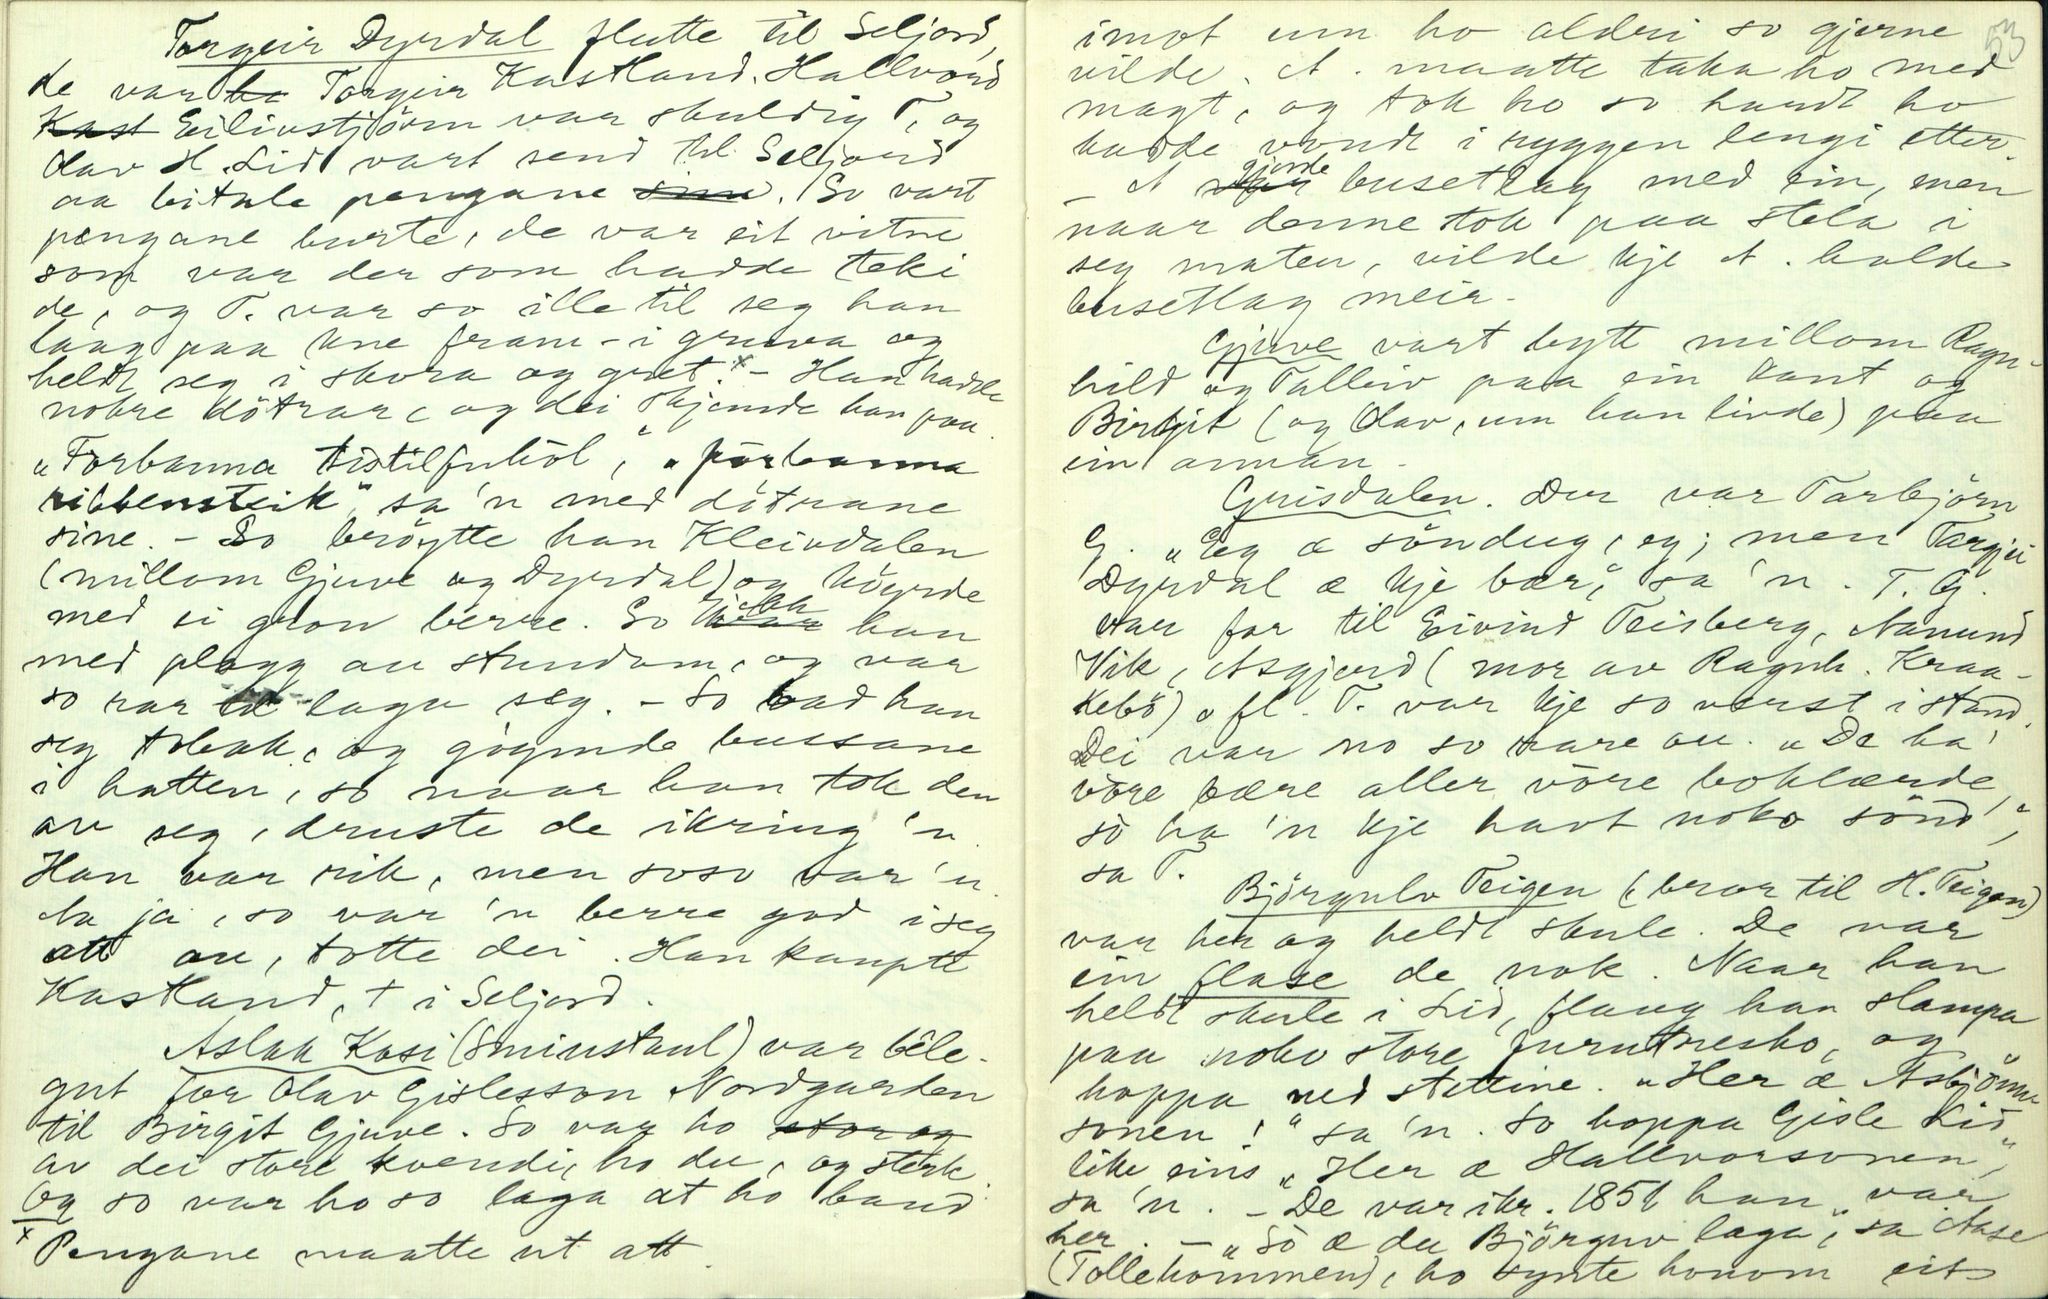 Torgeir Dyrdal flutte til Seljord,
de var ha Torgeir Kastland. Hallvord
Kast Eilivstjörn var skuldig T, og
Olav H. Lid vart send til Seljord
aa bitale pengane sine. So vart
pengane burte, de var eit vitne
som var der som hadde teki
de, og T. var so ille til seg han
laag paa kne fram-i gruva og
heldt seg i skora og gret.x - Han hadde
nokre dötrar, og dei skjemde han paa.
„Forbanna tistilfuhöl", „forbanna
ribbensteik" sa 'n med dötrane
sine. - So bröytte han Kleivdalen
(millom Gjuve og Dyrdal) og köyrde
med ei grov berre. So gjekk han
med plagg au stundom, og var
so rar te laga seg. - So bad han
seg tobak, og göymde bussane
i hatten, so naar han tok den
av seg, druste de ikring 'n.
Han var rik, men soso var 'n.
Aa ja, so var 'n berre god i seg
att au, totte dei. Han kaupte
Kastland, † i Seljord.
Aslak Kasi (Sminstaul) var bêle-
gut for Olav Gislesson Nordgarden
til Birgit Gjuve. So var ho stor og
av dei store kvendi, ho du, og sterk
Og so var ho so laga at ho band
x Pengane maatte ut att.
53
imot um ho aldri so gjerne
vilde. A. maatte taka ho med
magt, og tok ho so hardt ho
hadde vondt i ryggen lengi etter.
- A gjorde busetlag med ein, men
naar denne tok paa stela i
seg maten, vilde kje A. halde
busetlag meir.
Gjuve vart bytt millom Ragn-
hild og Talleiv paa ein kant og
Birgit (og Olav, um han livde) paa
ein annan.
Grisdalen. Der var Tarbjörn
G. „Eg æ söndug, eg; men Targjei
Dyrdal æ kje bær", sa 'n. T. G.
var far til Eivind Teisberg, Nanund
Vik, Asgjerd (mor av Ragnh. Kraa-
kebö) o fl. T. var kje so verst i stand.
Dei var no so rare au. „De ha'
vöre bære aller vöre boklærde,
sò ha 'n kje havt noko sönd!",
sa T.
Björgulv Teigen (bror til H. Teigen)
var her og heldt skule. De var
ein flase de nok. Naar han
heldt skule i Lid, flaug han slampa
paa noko store furutresko, og
hoppa ned stettine. „Her æ Asbjönn-
sonen!" sa 'n. So hoppa Gisle Lid
like eins „Her æ Hallvorsonen",
sa 'n. - De var ikr. 1851 han var
her. - „Sò æ du Björguv laga", sa Aase
(Tollekommen), ho synte honom eit